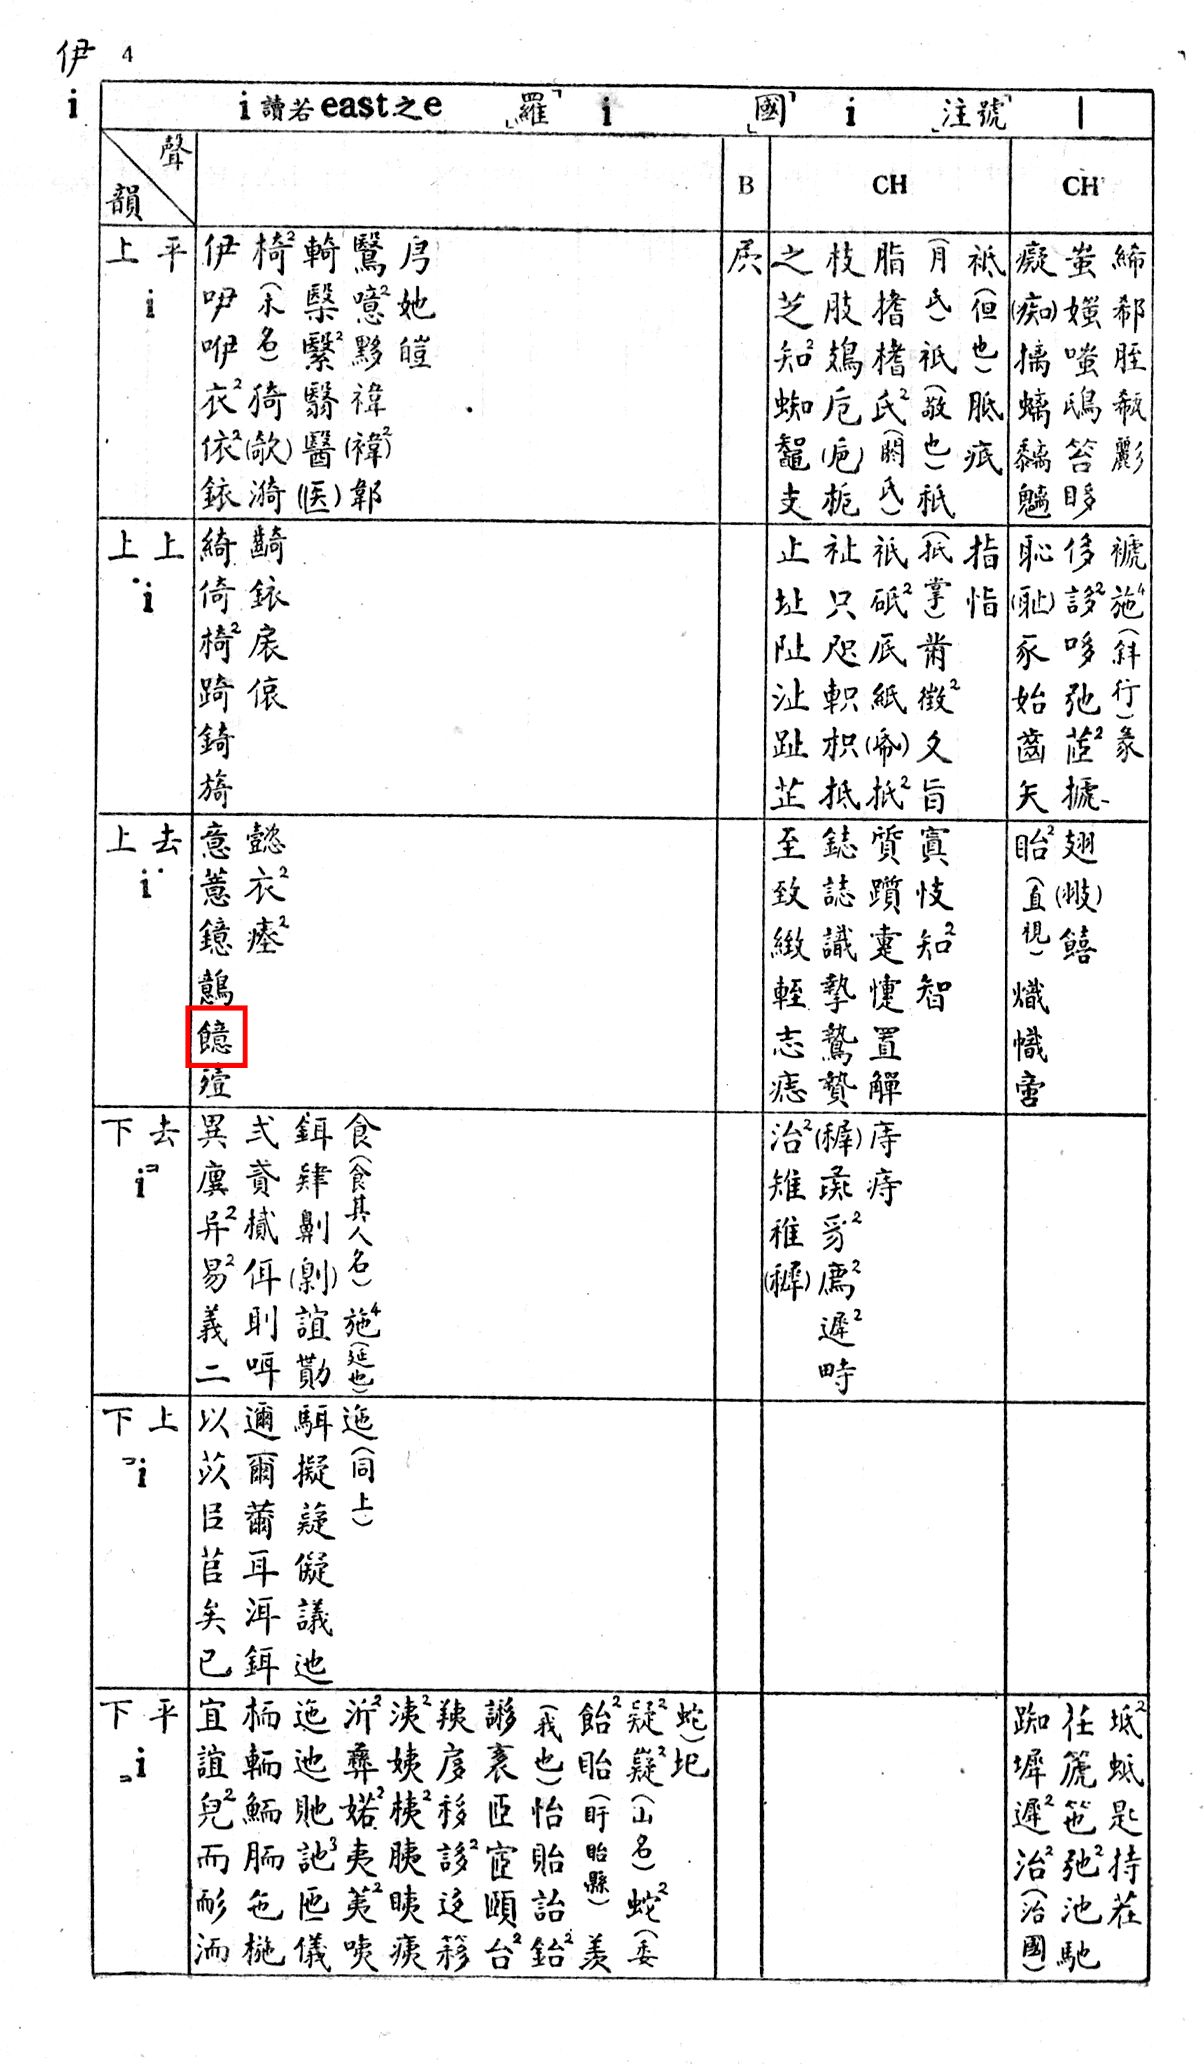 伊 4
i
i 讀若 east 之 e 「羅」 i 「國」 i 「注號」 |
聲
韻
B CH CH'
上平
i
伊吚咿衣²依²銥
椅²(木名)猗(欹)漪
輢檕繄²翳醫(医)
鷖噫²黟禕(褘²)郼
㕈她皚
屄
之芝知²蜘鼅支
枝肢鳷卮(巵)梔
脂搘榰氏²(閼氏)
(月氏)祇(敬也)秖
祗(但也)胝疷
癡(痴)摛螭黐魑
蚩媸嗤鴟笞眵
絺郗胵瓻彲
上上
i
綺倚椅²踦錡旖
齮銥扆偯
止址阯沚趾芷
祉只咫軹枳抵
祇砥²厎紙(帋)抵²
(抵掌)黹徵²夂旨
指恉
恥(耻)豕始齒矢
侈誃²哆弛茝²摅
褫施⁴(斜行)彖
上去
i
意薏鐿鷾殪
懿衣²瘞²
至致緻輊志痣
鋕誌識摯鷙贄
質躓疐懥置觶
寘忮知²智
眙²(直視)熾幟啻
翅(翄)饎
下去
i
異廙异²易²義二
弍貳樲佴刵咡
鉺肄劓(臬刂)誼勩
食(食其人名)施⁴(延也)
治²雉稚(穉)
(稺)彘豸²廌²遲²畤
庤痔
下上
i
以苡㠯苢矣已
邇爾薾耳洱鉺
駬擬薿儗議迆
迤(同上)
下平
i
宜誼兒²而耏洏
栭輀鮞胹匜椸
迤迆貤訑³匜儀
沂²彝婼²夷荑²咦
洟²姨桋²胰眱痍
羠扅移誃²迻簃
謻袲匝宧頤台²
(我也)怡貽詒鈶²
飴²眙(盱眙縣)羨
疑²嶷²(山名)蛇²(委
蛇)圯
踟墀遲²治²(治國)
茌篪箎弛²池馳
坻²蚳匙持茬